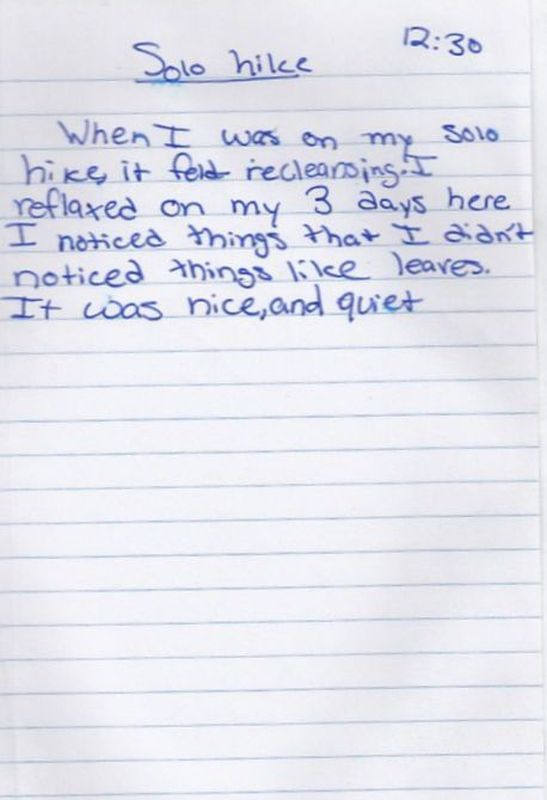 12:30
Solo hike
When I was on my solo
hike, it feld recleansing. I
reflaxed on my 3 days here
I noticed things that I didn't
noticed things like leaves.
It was nice, and quiet